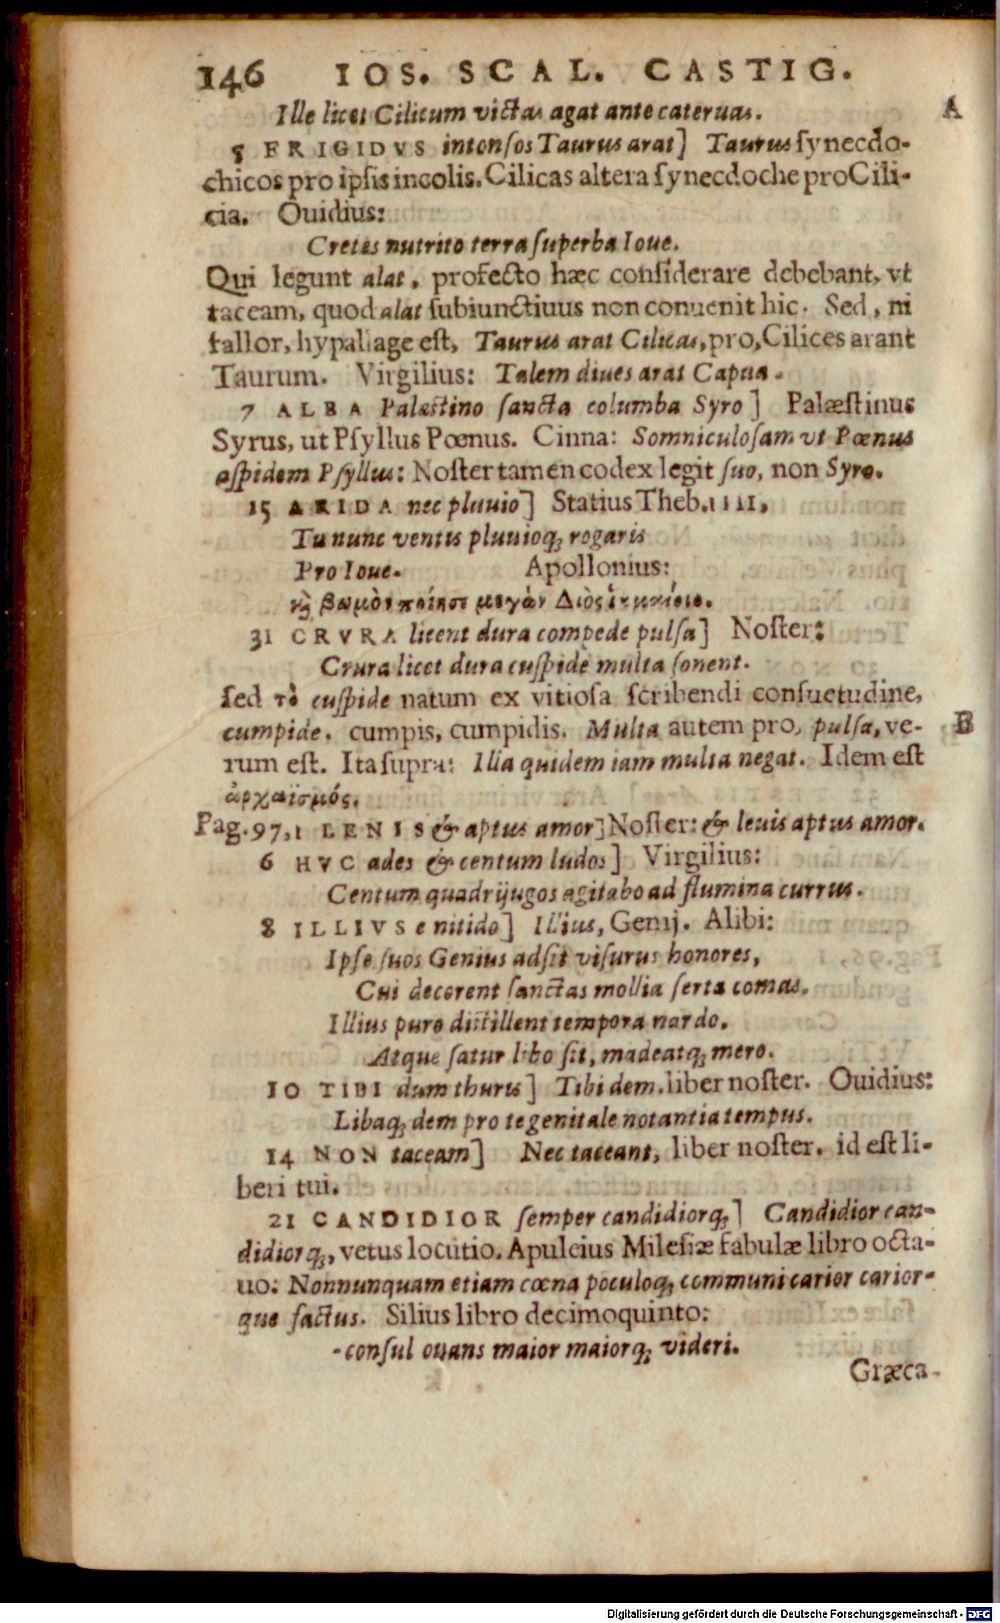 146 IOS. SCAL. CASTIG.
Ille licet Cilicum victas agat ante cateruas. A
5 FRIGIDVS intonsos Taurus arat] Taurus synecdo-
chicos pro ipsis incolis. Cilicas altera synecdoche pro Cili-
cia. Ouidius:
Cretes nutrito terra superba Ioue.
Qui legunt alat, profecto hæc considerare debebant, vt
taceam, quod alat subiunctiuus non conuenit hic. Sed, ni
fallor, hypallage est, Taurus arat Cilicas, pro, Cilices arant
Taurum. Virgilius: Talem diues arat Capua.
7 ALBA Palæstino sancta columba Syro] Palæstinus
Syrus, ut Psyllus Pœnus. Cinna: Somniculosam vt Pœnus
aspidem Psyllus: Noster tamen codex legit suo, non Syro.
15 ARIDA nec pluuio] Statius Theb. IIII.
Tu nunc ventis pluuioq; rogaris
Pro Ioue. Apollonius:
καὶ βωμὸν ποίησε μεγὰν Διὸς ἰκμαίοιο.
31 CRVRA licent dura compede pulsa] Noster:
Crura licet dura cuspide multa sonent.
sed τὸ cuspide natum ex vitiosa scribendi consuetudine,
cumpide. cumpis, cumpidis. Multa autem pro, pulsa, ve- B
rum est. Ita supra: Ilia quidem iam multa negat. Idem est
ἀρχαϊσμός.
Pag. 97, 1 LENIS & aptus amor] Noster: & leuis aptus amor.
6 HVC ades & centum ludos] Virgilius:
Centum quadrijugos agitabo ad flumina currus.
8 ILLIVS e nitido] Illius, Genij. Alibi:
Ipse suos Genius adsit visurus honores,
Cui decorent sanctas mollia serta comas.
Illius puro distillent tempora nardo.
Atque satur libo sit, madeatq; mero.
10 TIBI dum thuris] Tibi dem. liber noster. Ouidius:
Libaq; dem pro te genitale notantia tempus.
14 NON taceam] Nec taceant, liber noster. id est li-
beri tui.
21 CANDIDIOR semper candidiorq;] Candidior can-
didiorq;, vetus locutio. Apuleius Milesiæ fabulæ libro octa-
uo: Nonnunquam etiam cœna poculoq; communi carior carior-
que factus. Silius libro decimoquinto:
-consul ouans maior maiorq; videri.
Græca-
Digitalisierung gefördert durch die Deutsche Forschungsgemeinschaft - DFG